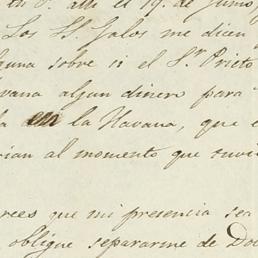 el 19. de Junio
Los SS. Galos me dicen
guna sobre si el Sr. Prieto
vana algun dinero para
la en la Havana, que e
rian al momento que tuvie
rees que mi presencia sea
oblige separarme de Do